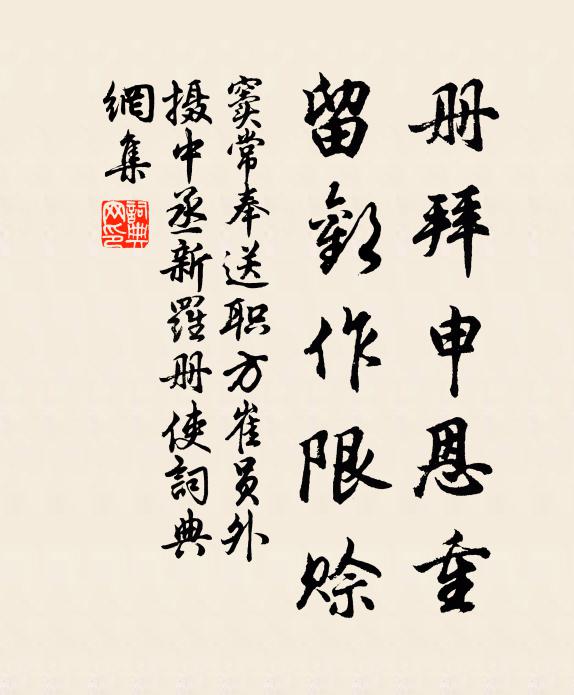 册拜申恩重
留歡作限赊
窦常奉送职方崔员外
摄中丞新羅册使詞典
網集
詞典網印